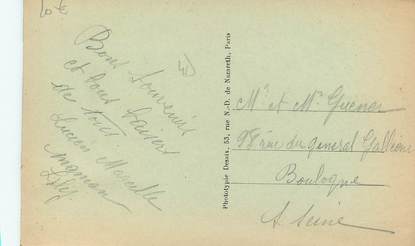 10 €
Bons souvenirs
et bons baisers
de tous
Lucien Marcelle
maman
Phototypie Desaix, 53, rue N.-D. de Nazareth, Paris
Mr et Me
98 rue du général Galliéni
Boulogne
s. Seine